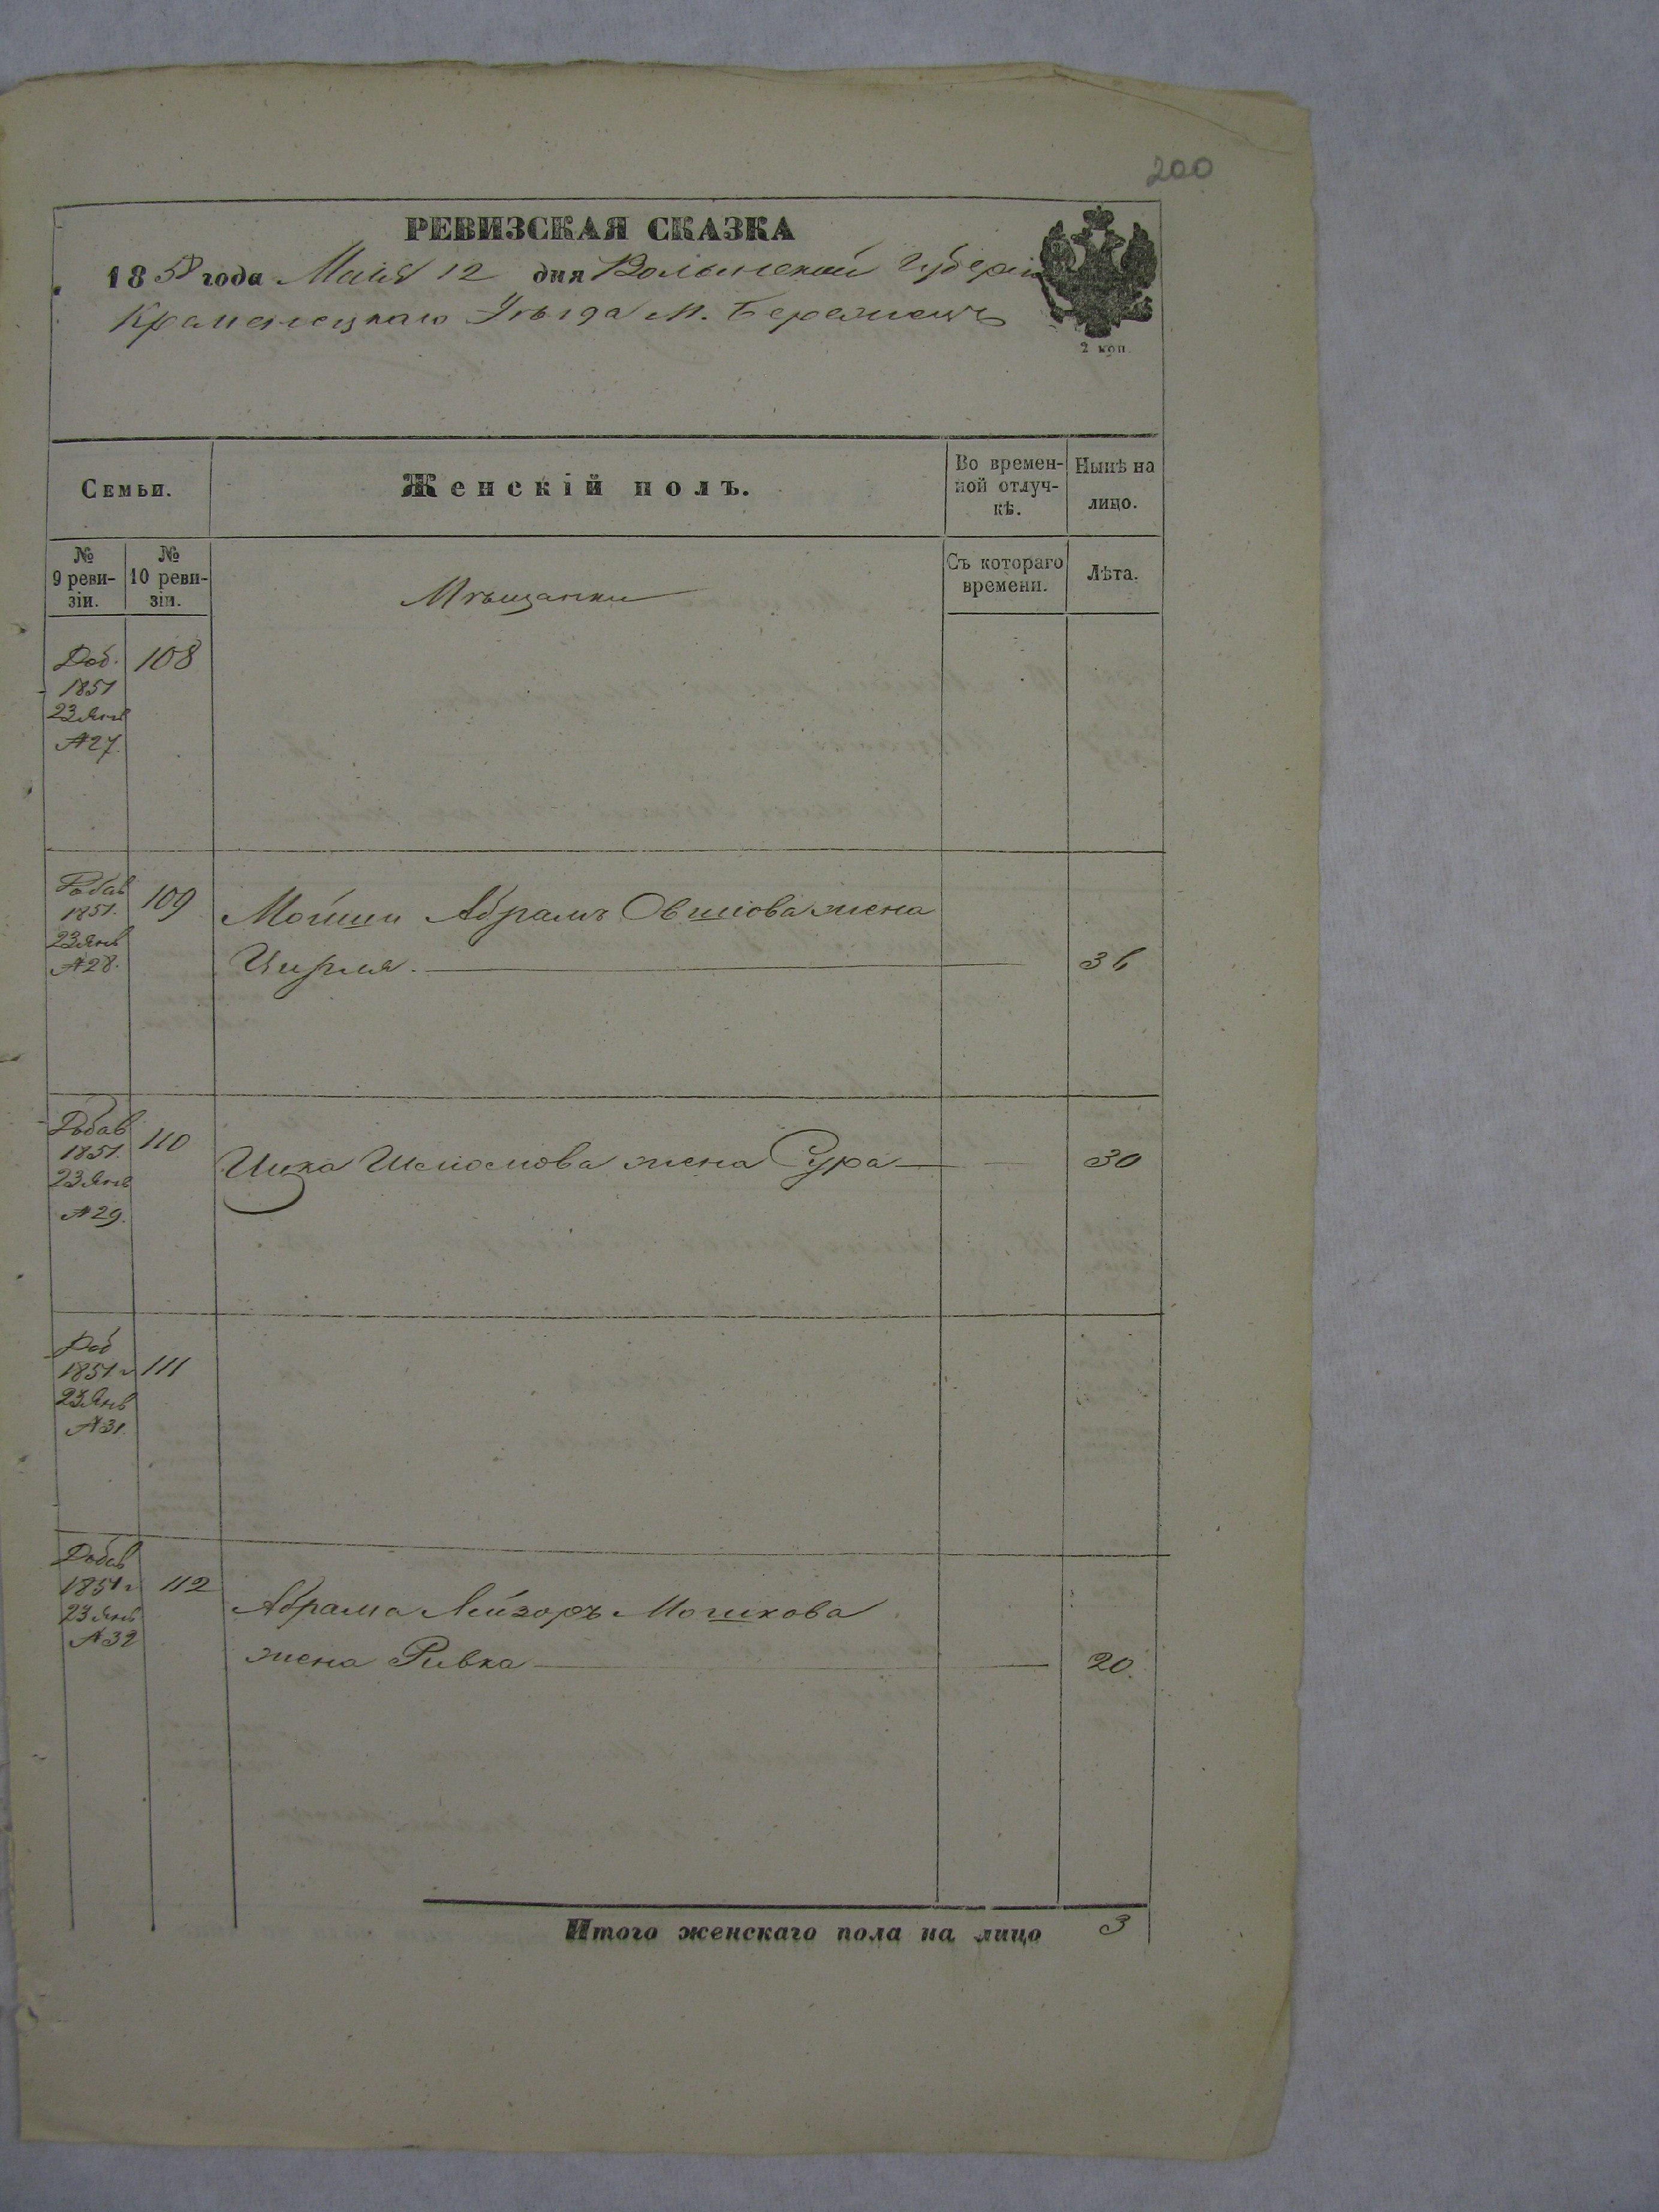 200
РЕВИЗСКАЯ СКАЗКА
1858 года Маія 12 дня Волынской Губерніи
Кременецкаго Уѣзда М. Бережецъ
2 коп.
Семьи.
Женскій полъ.
Во времен-
ной отлуч-
кѣ.
Нынѣ на
лицо.
№
9 реви-
зіи.
№
10 реви-
зіи.
Мѣщанки
Съ котораго
времени.
Лѣта.
Доб. 108
1851
23 Янв
№ 27.
Добав 109
1851.
23 Янв
№ 28.
Мошки Абрамъ Овшіова жена
Цирля. 36
Добав 110
1851.
23 Янв
№ 29.
Ицка Шліомова жена Сура 30
Доб
1851 г 111
23 Янв
№ 31.
Добав
1851 г 112
23 Янв
№ 32
Абрама Лейзоръ Мошкова
жена Ривка 20.
Итого женскаго пола на лицо 3